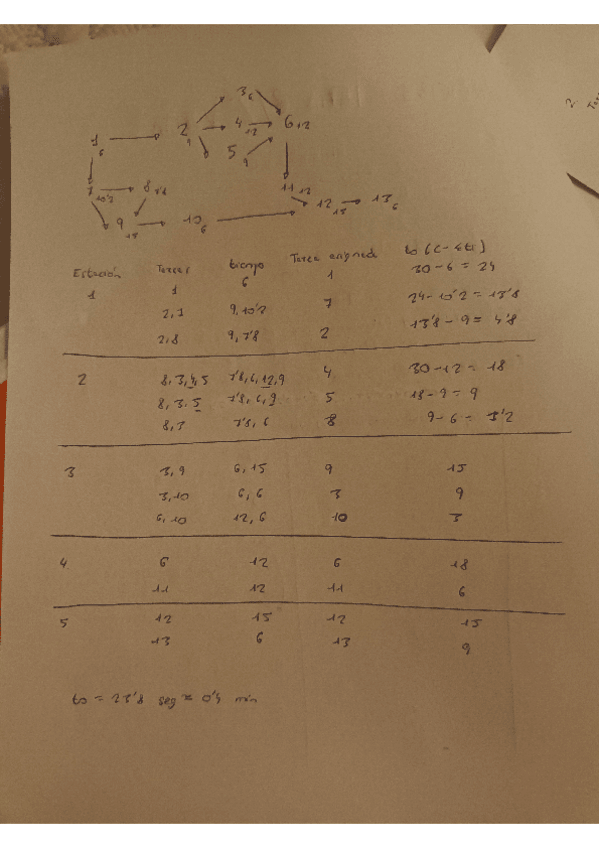 3 6
1 6 2 9 4 12 6 12
5 9
7 10'2 8 7'8 11 12
9 15 10 6 12 15 13 6
Estación Tareas tiempo Tarea asignada to (c-Σti)
1 1 6 1 30-6 = 24
2,7 9,10'2 7 24-10'2 = 13'8
2,8 9,7'8 2 13'8-9 = 4'8
2 8,3,4,5 7'8,6,12,9 4 30-12 = 18
8,3,5 7'8,6,9 5 18-9 = 9
8,3 7'8,6 8 9-6 = 3'2
3 3,9 6,15 9 15
3,10 6,6 3 9
6,10 12,6 10 3
4 6 12 6 18
11 12 11 6
5 12 15 12 15
13 6 13 9
to = 23'8 seg ≈ 0'4 min